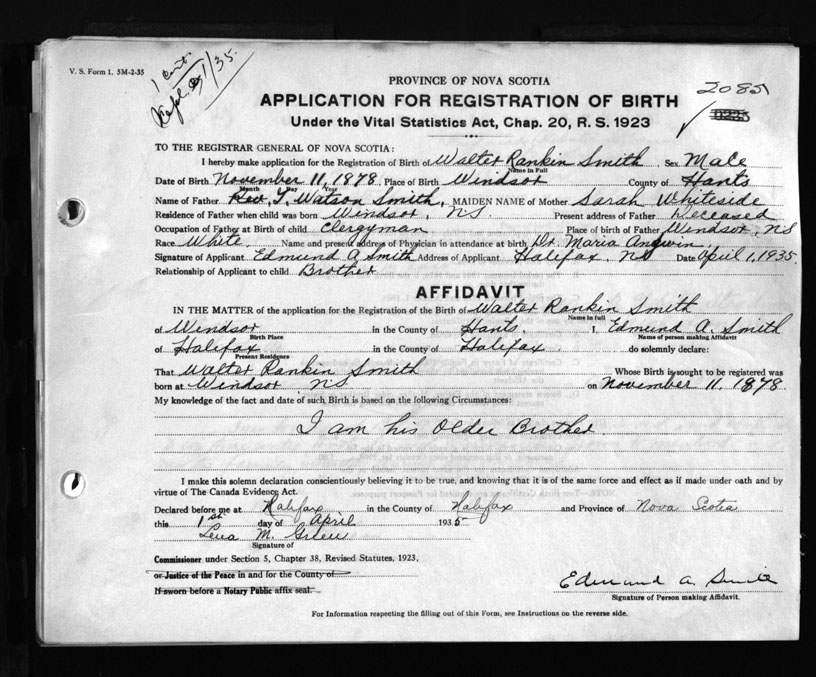 V. S. Form 1. 5M-2-35
1 cert.
1/35.
PROVINCE OF NOVA SCOTIA
2085
APPLICATION FOR REGISTRATION OF BIRTH
Under the Vital Statistics Act, Chap. 20, R. S. 1923
TO THE REGISTRAR GENERAL OF NOVA SCOTIA:
I hereby make application for the Registration of Birth of Walter Rankin Smith, Sex Male
Name in Full
Date of Birth November 11, 1878, Place of Birth Windsor County of Hants
Month Day Year
Name of Father Rev. T. Watson Smith, MAIDEN NAME of Mother Sarah Whiteside
Residence of Father when child was born Windsor, NS Present address of Father Deceased
Occupation of Father at Birth of child Clergyman Place of birth of Father Windsor, NS
Race White. Name and present address of Physician in attendance at birth Dr. Maria Angwin,
Signature of Applicant Edmund A Smith Address of Applicant Halifax, NS Date April 1, 1935.
Relationship of Applicant to child Brother
AFFIDAVIT
IN THE MATTER of the application for the Registration of the Birth of Walter Rankin Smith
Name in full
of Windsor in the County of Hants. I, Edmund A. Smith
Birth Place Name of person making Affidavit
of Halifax in the County of Halifax do solemnly declare:
Present Residence
That Walter Rankin Smith Whose Birth is sought to be registered was
born at Windsor, NS on November 11, 1878.
My knowledge of the fact and date of such Birth is based on the following Circumstances:
I am his Older Brother
I make this solemn declaration conscientiously believing it to be true, and knowing that it is of the same force and effect as if made under oath and by
virtue of The Canada Evidence Act.
Declared before me at Halifax in the County of Halifax and Province of Nova Scotia
this 1st day of April 1935
Lena M. Green
Signature of
Commissioner under Section 5, Chapter 38, Revised Statutes, 1923,
or Justice of the Peace in and for the County of
If sworn before a Notary Public affix seal.
Edmund A. Smith
Signature of Person making Affidavit.
For Information respecting the filling out of this Form, see Instructions on the reverse side.